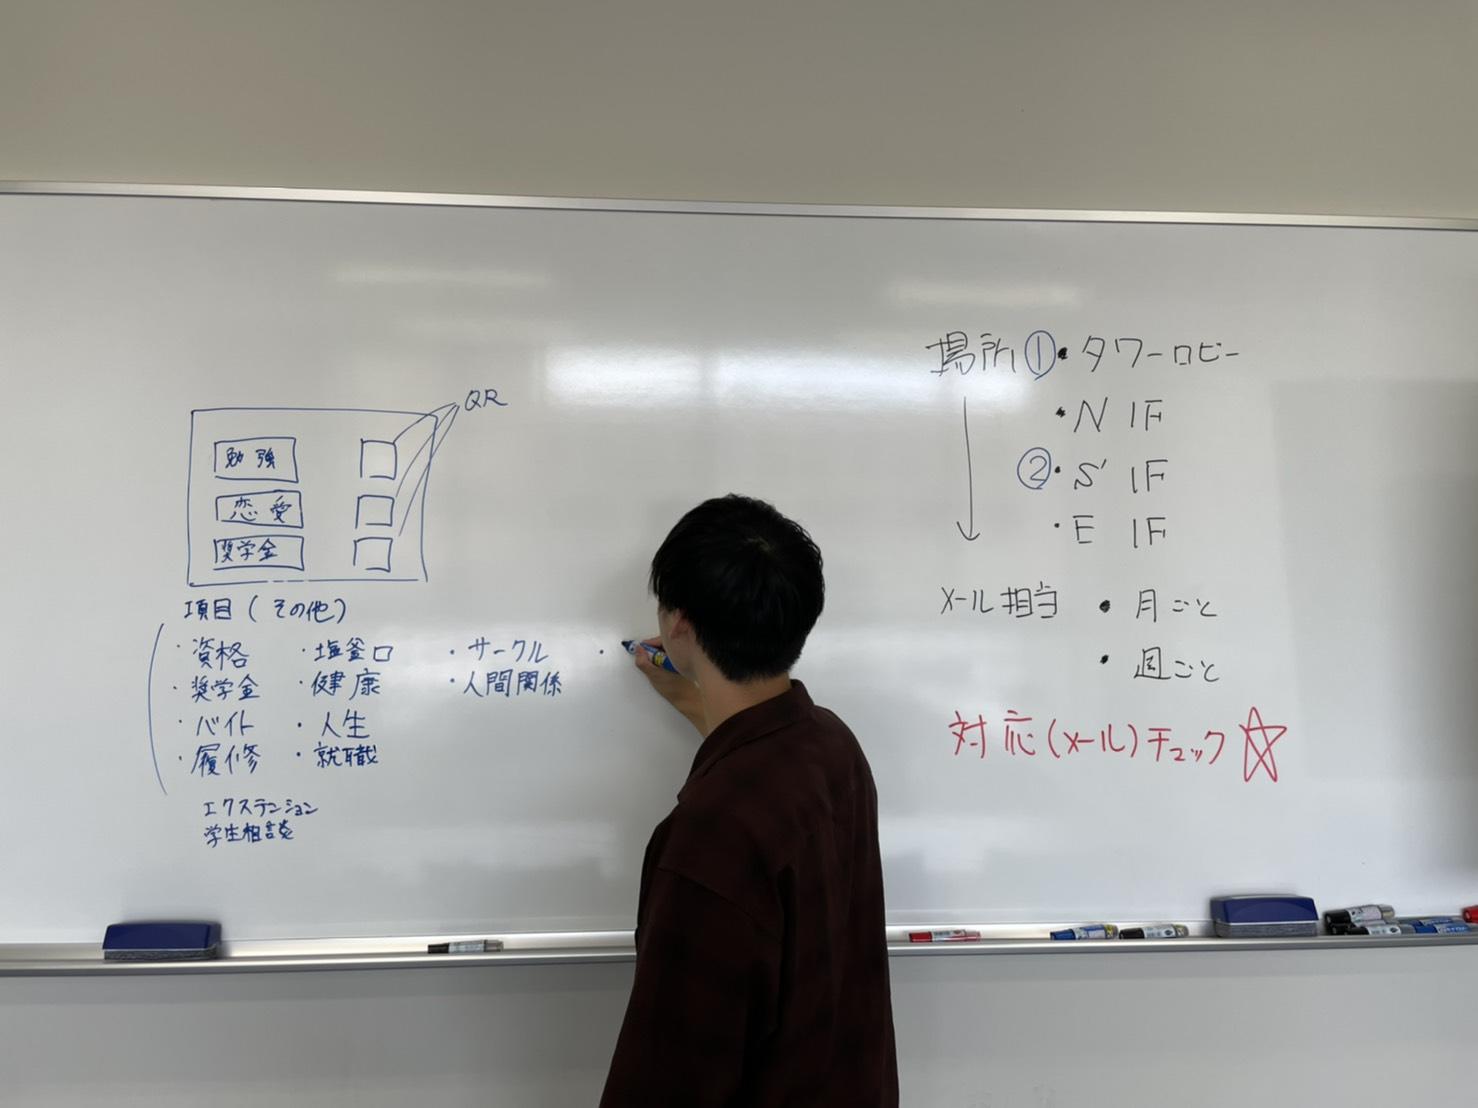 QR
勉強
恋愛
奨学金
項目(その他)
・資格 ・塩釜口 ・サークル ・
・奨学金 ・健康 ・人間関係
・バイト ・人生
・履修 ・就職
エクステンション
学生相談
場所 ①・タワーロビー
・N 1F
②・S 1F
・E 1F
メール担当 ・月ごと
・週ごと
対応(メール)チェック☆